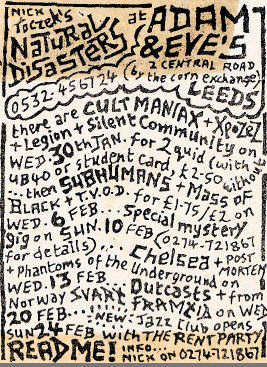 NICK
TOCZEK'S
NATURAL
DISASTERS
at ADAM
& EVE'S
2 CENTRAL ROAD
(by the corn exchange)
0532-456724
LEEDS
there are CULT MANIAX + XPOZEZ
+ Legion + Silent Community on
WED. 30th JAN. for 2 quid (with
UB40 or student card, £2-50 without)
..then SUBHUMANS + Mass of
BLACK + T.V.O.D. for £1-75/£2 on
WED. 6 FEB... Special mystery
gig on SUN. 10 FEB (0274-721867
for details)... Chelsea + POST
MORTEM
+ Phantoms of the Underground on
WED. 13 FEB... Outcasts + from
Norway SVART FRAMTIA on WED
20 FEB.... NEW: Jazz Club opens
SUN 24 FEB with THE RENT PARTY
READ ME! INFO...
NICK ON 0274-721867